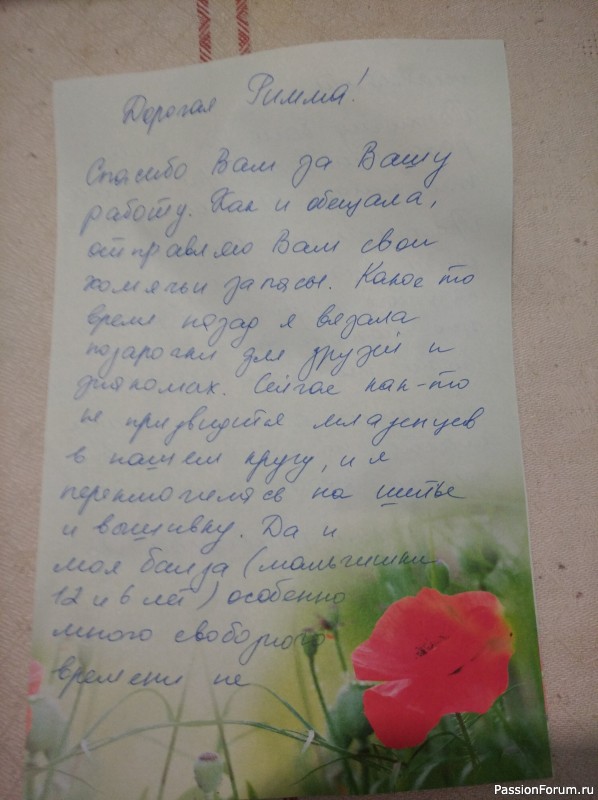 Дорогая Римма!
Спасибо Вам за Вашу
работу. Как и обещала,
отправляю Вам свои
хомячьи запасы. Какое то
время назад я вязала
подарочки для друзей и
знакомых. Сейчас как-то
не предвидится младенцев
в нашем кругу, и я
переключилась на шитье
и вышивку. Да и
моя банда (мальчишки
12 и 6 лет) особенно
много свободного
времени не
PassionForum.ru